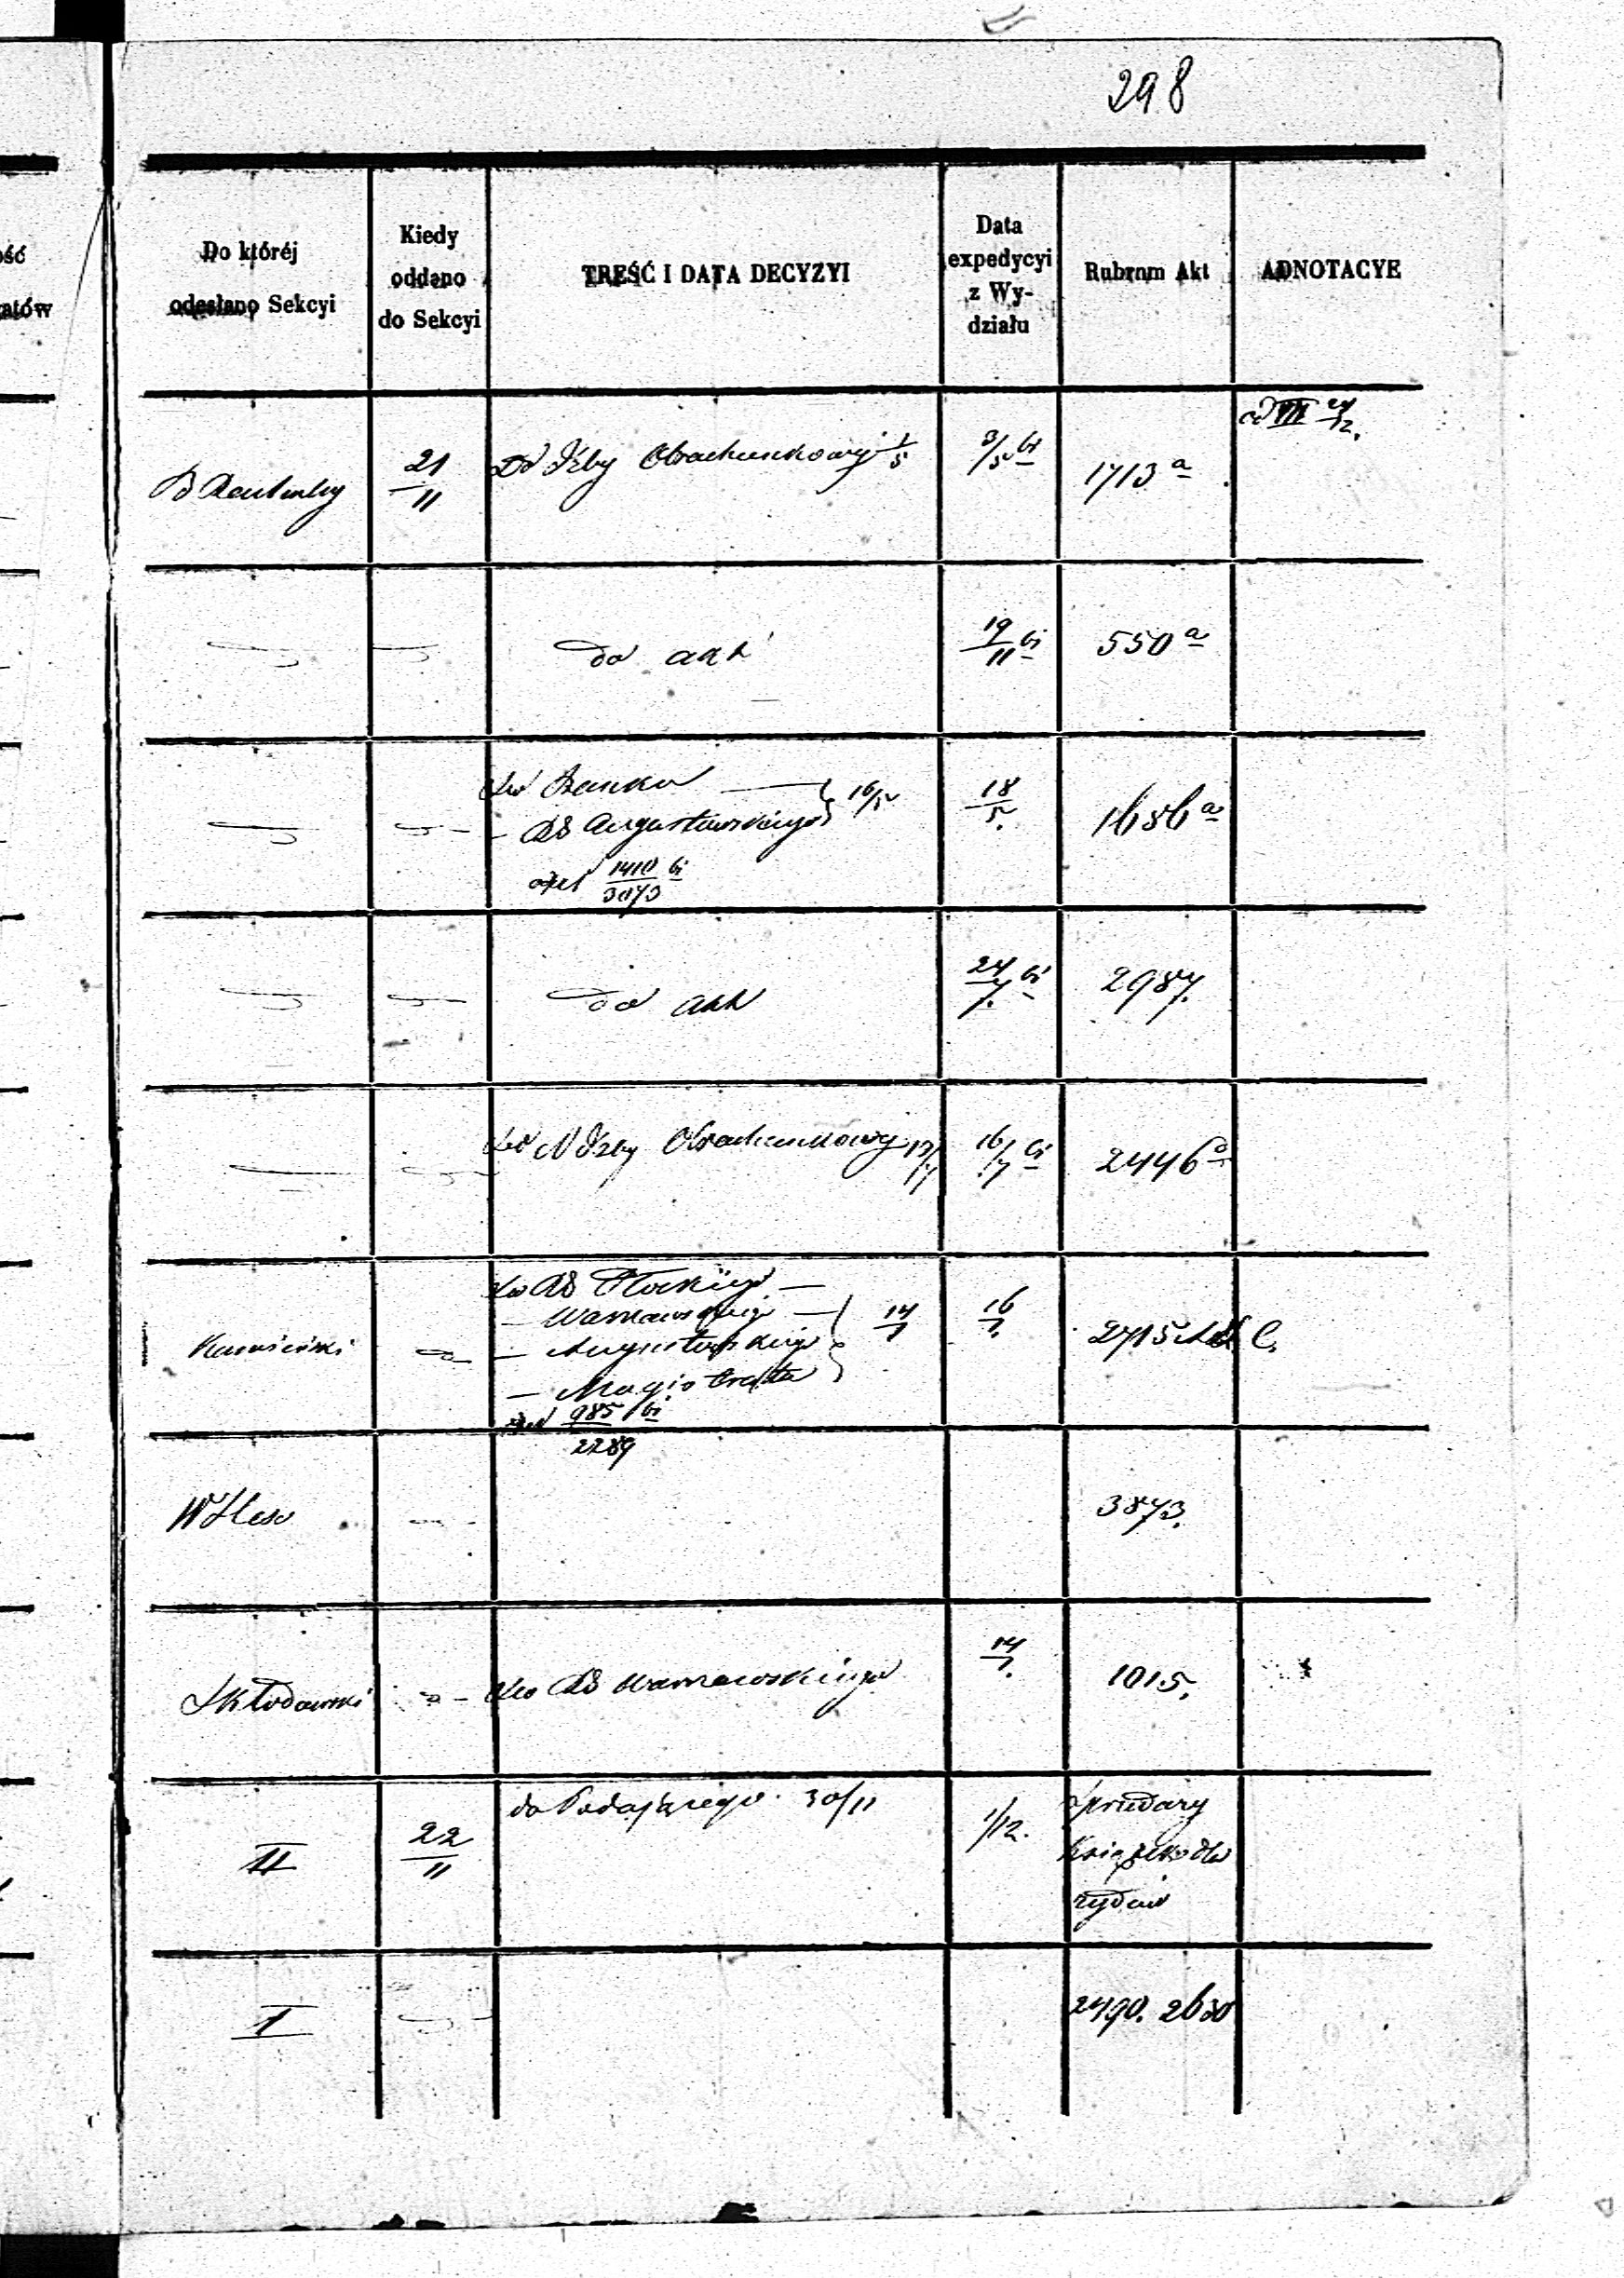 298
ość
atów
Do któréj
odesłano Sekcyi
Kiedy
oddano
do Sekcyi
TREŚĆ I DATA DECYZYI
Data
expedycyi
z Wy-
działu
Rubrum Akt
ADNOTACYE
21/11
Do Izby Obrachunkowej 1/5
3/5 bi
1713 a
ad III 24/12.
do akt
19/11 bi
550 a
do Banku
16/5
— RG Augustowskiego
1410/3073 bi
18/5.
1686 a
do akt
24/7. bi
2987.
do N Izby Obrachunkowej 13/7
16/7 bi
2446 a
Kamiński
do RG Płockiego —
— Warszawskiego —
— Augustowskiego
— Magistratu
985/2289 bi
14/7
16/7.
2715 C.
W Hess
3873.
Skłodowski
do RG Warszawskiego
14/7.
1015.
II
22/11
do Podającego 30/11
1/12.
Sprzedaży
Książek dla
żydów
I
2490. 2630